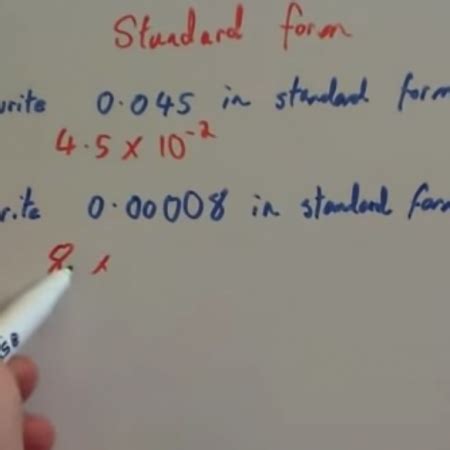 Standard form
write 0.045 in standard form
4.5 x 10⁻²
write 0.00008 in standard form
8 x
58